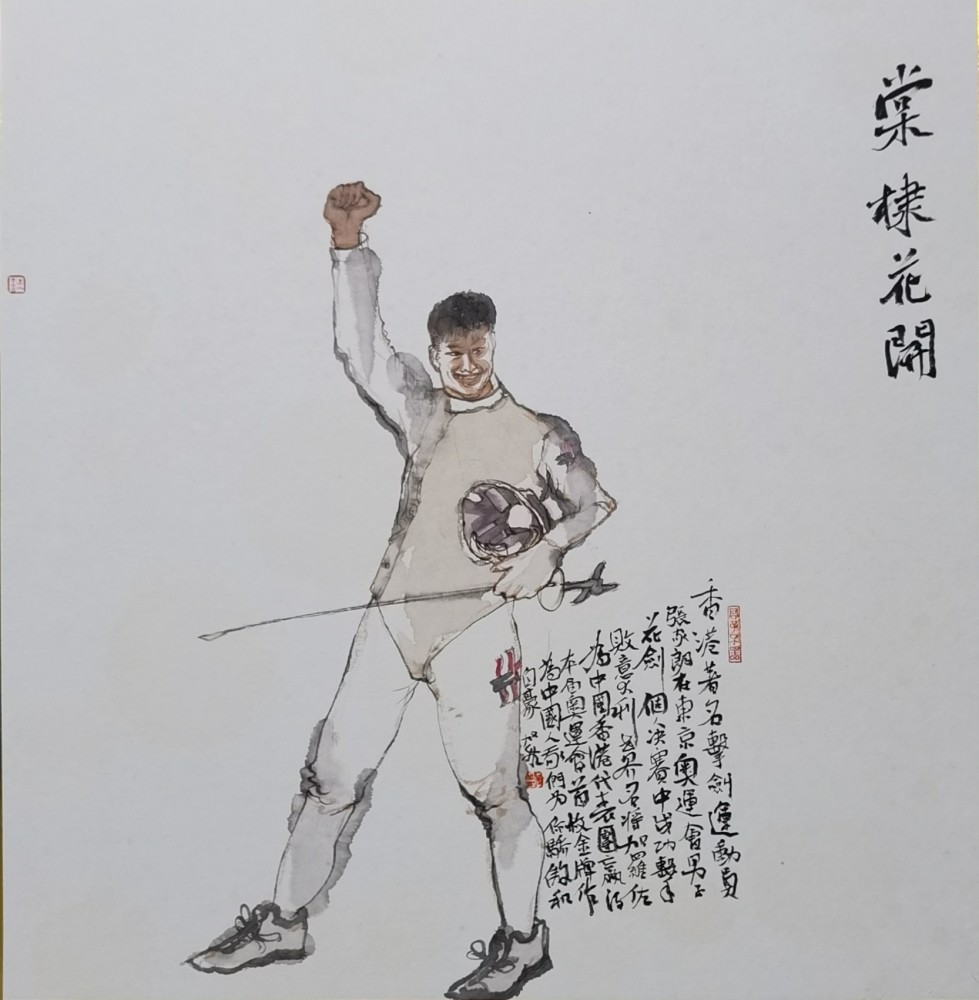 棠棣花開
香港著名擊劍運動員
張家朗在東京奧運會男子
花劍個人決賽中成功擊
敗意大利世界名將加羅佐
為中國香港代表團贏得
本屆奧運會首枚金牌作
為中國人我們為你驕傲和
自豪